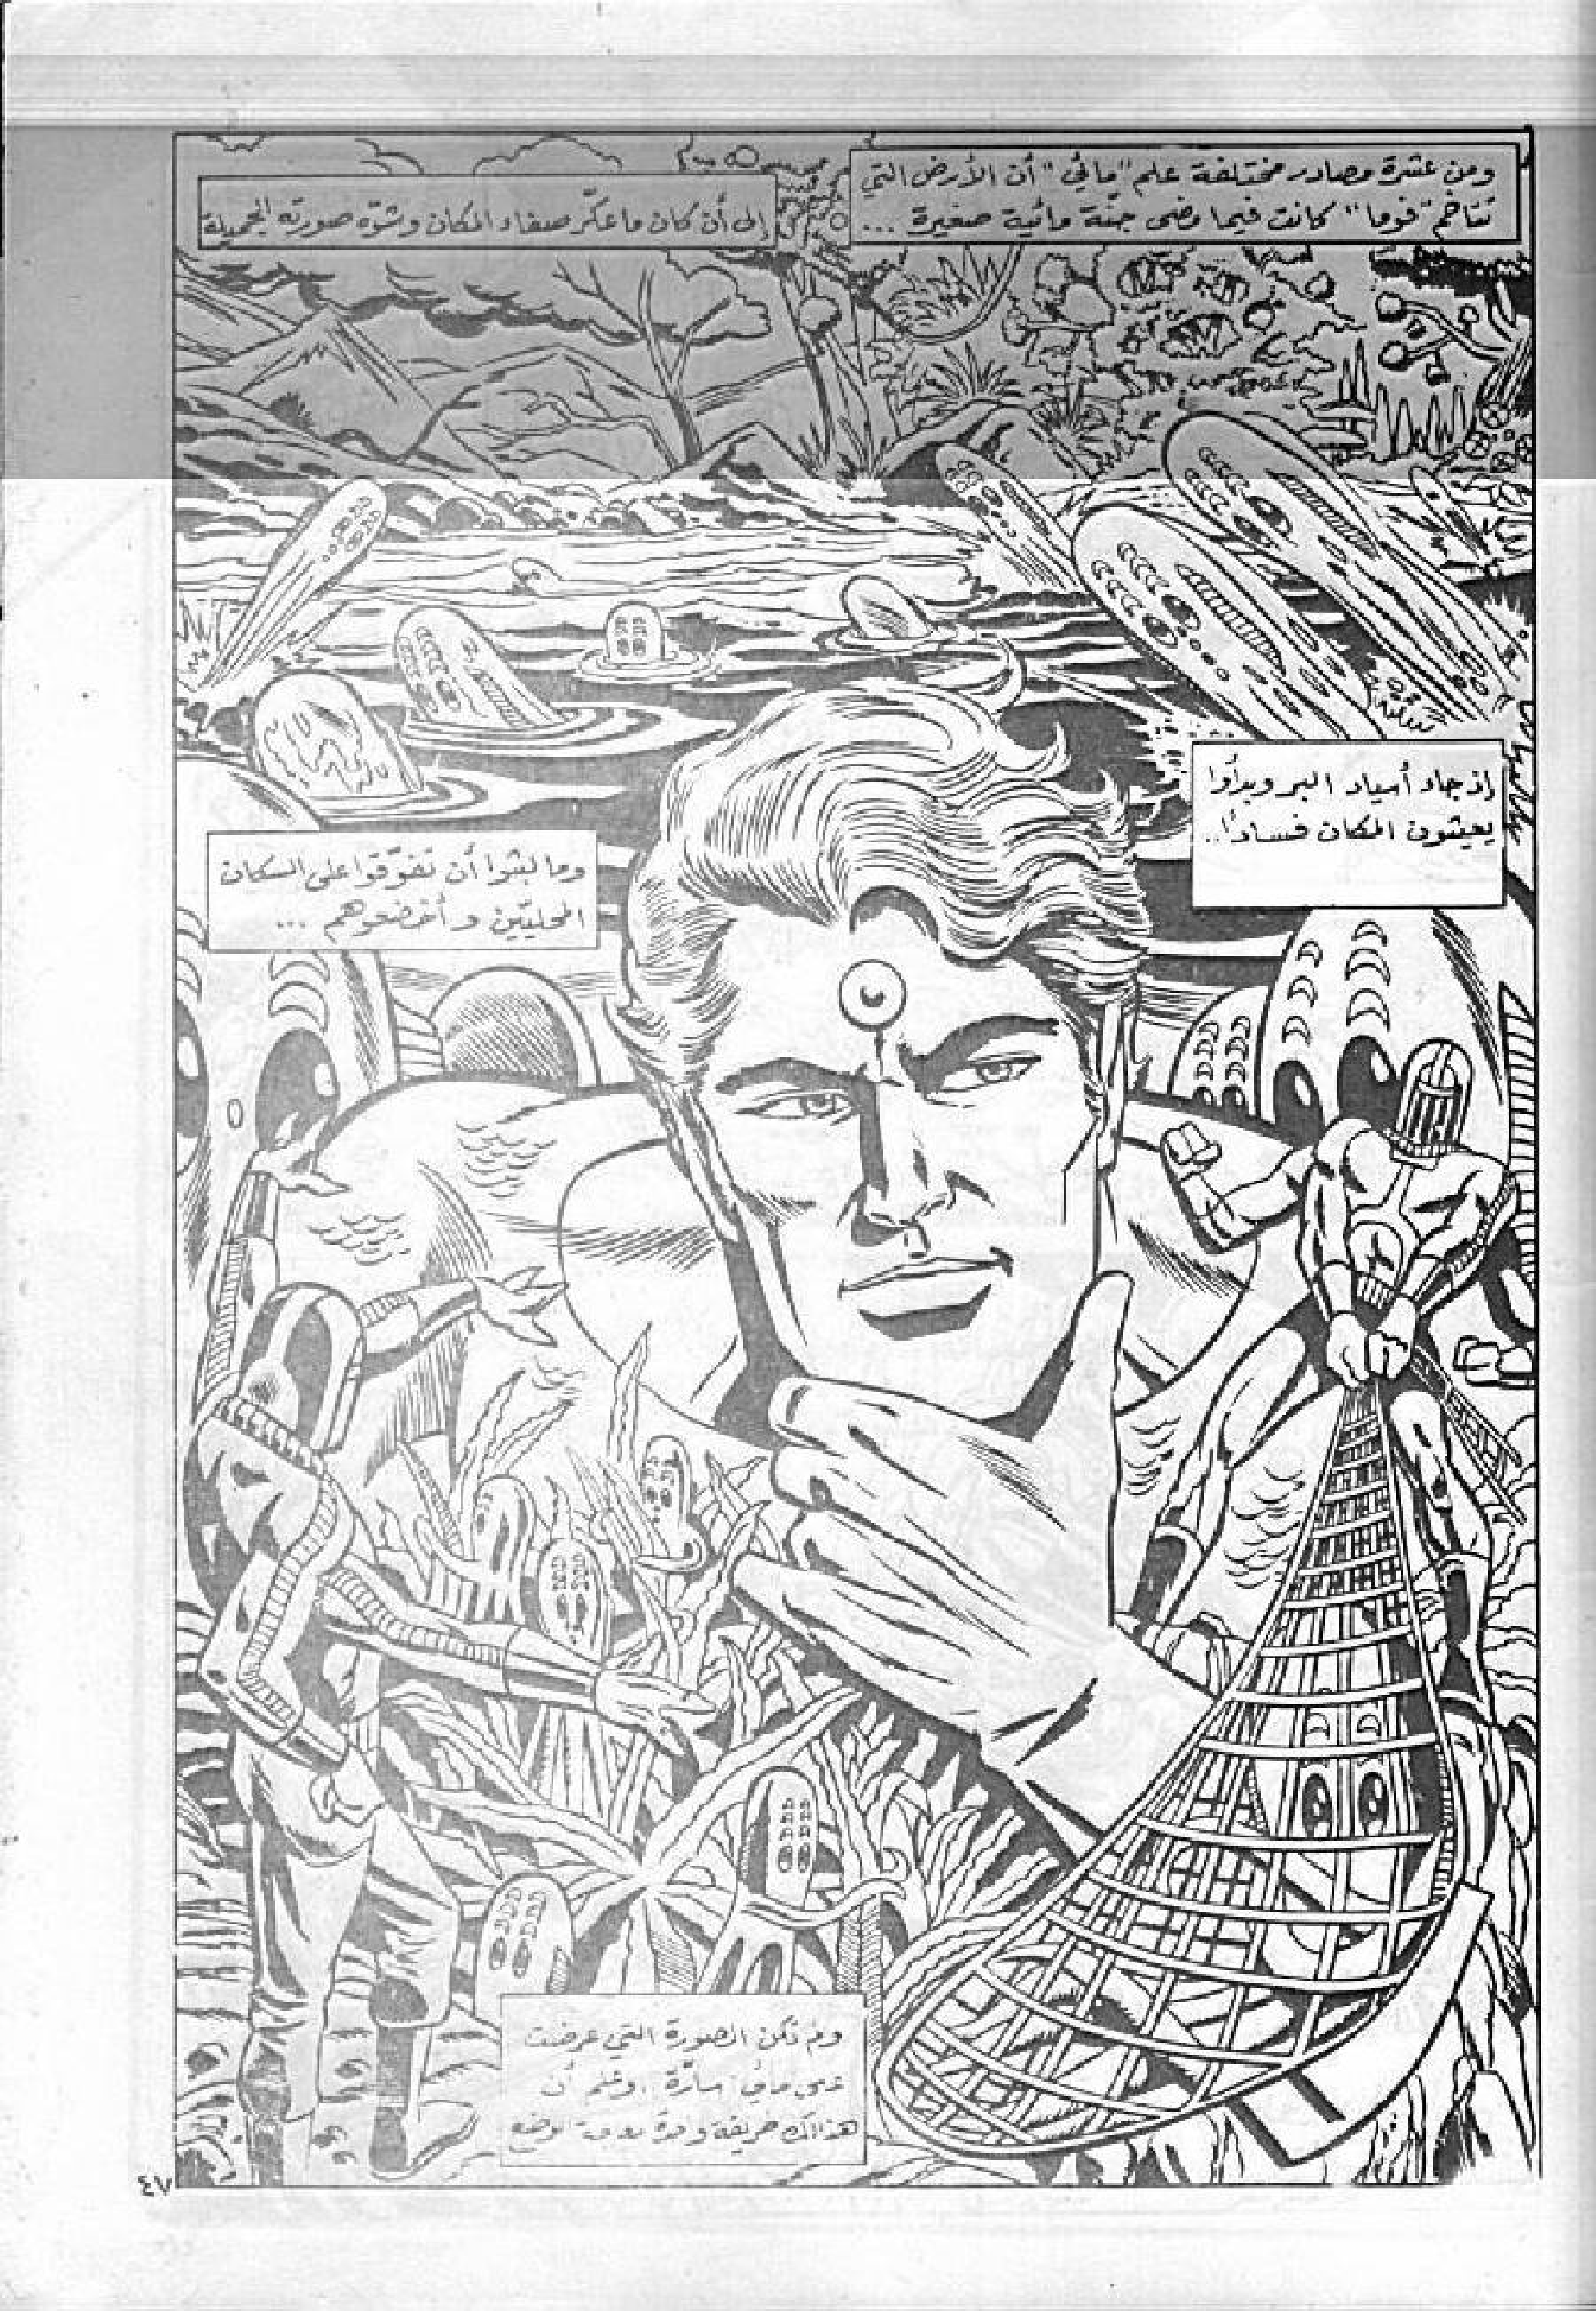 ومن عشرة مصادر مختلفة علم "مائي" أن الأرض التي
تتاخم "فوما" كانت فيما مضى جنّة مائية صغيرة ...
إلى أن كان ما عكّر صفاء المكان وشوّه صورته الجميلة
إذ جاء أسياد البر وبدأوا
يعيثون المكان فسادًا..
وما لبثوا أن تفوّقوا على السكان
المحليّين وأخضعوهم ...
ولم تكن الصورة التي عرضت
على مائي سارّة، وعلم أن
هناك طريقة واحدة
٤٧